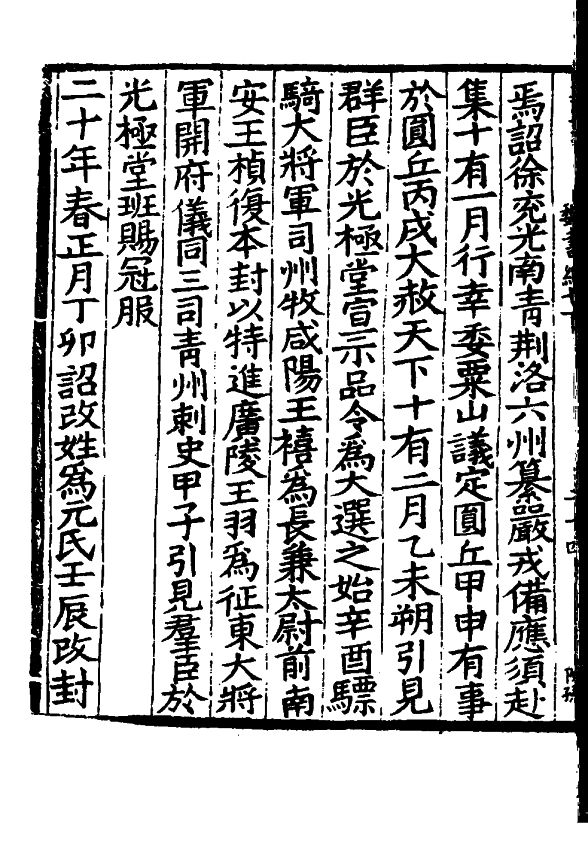 焉詔徐兖光南青荆洛六州纂嚴戎備應須赴
集十有一月行幸委粟山議定圓丘甲申有事
於圓丘丙戌大赦天下十有二月乙未朔引見
群臣於光極堂宣示品令爲大選之始辛酉驃
騎大將軍司州牧咸陽王禧爲長兼太尉前南
安王楨復本封以特進廣陵王羽爲征東大將
軍開府儀同三司青州刺史甲子引見羣臣於
光極堂班賜冠服
二十年春正月丁卯詔改姓爲元氏壬辰改封